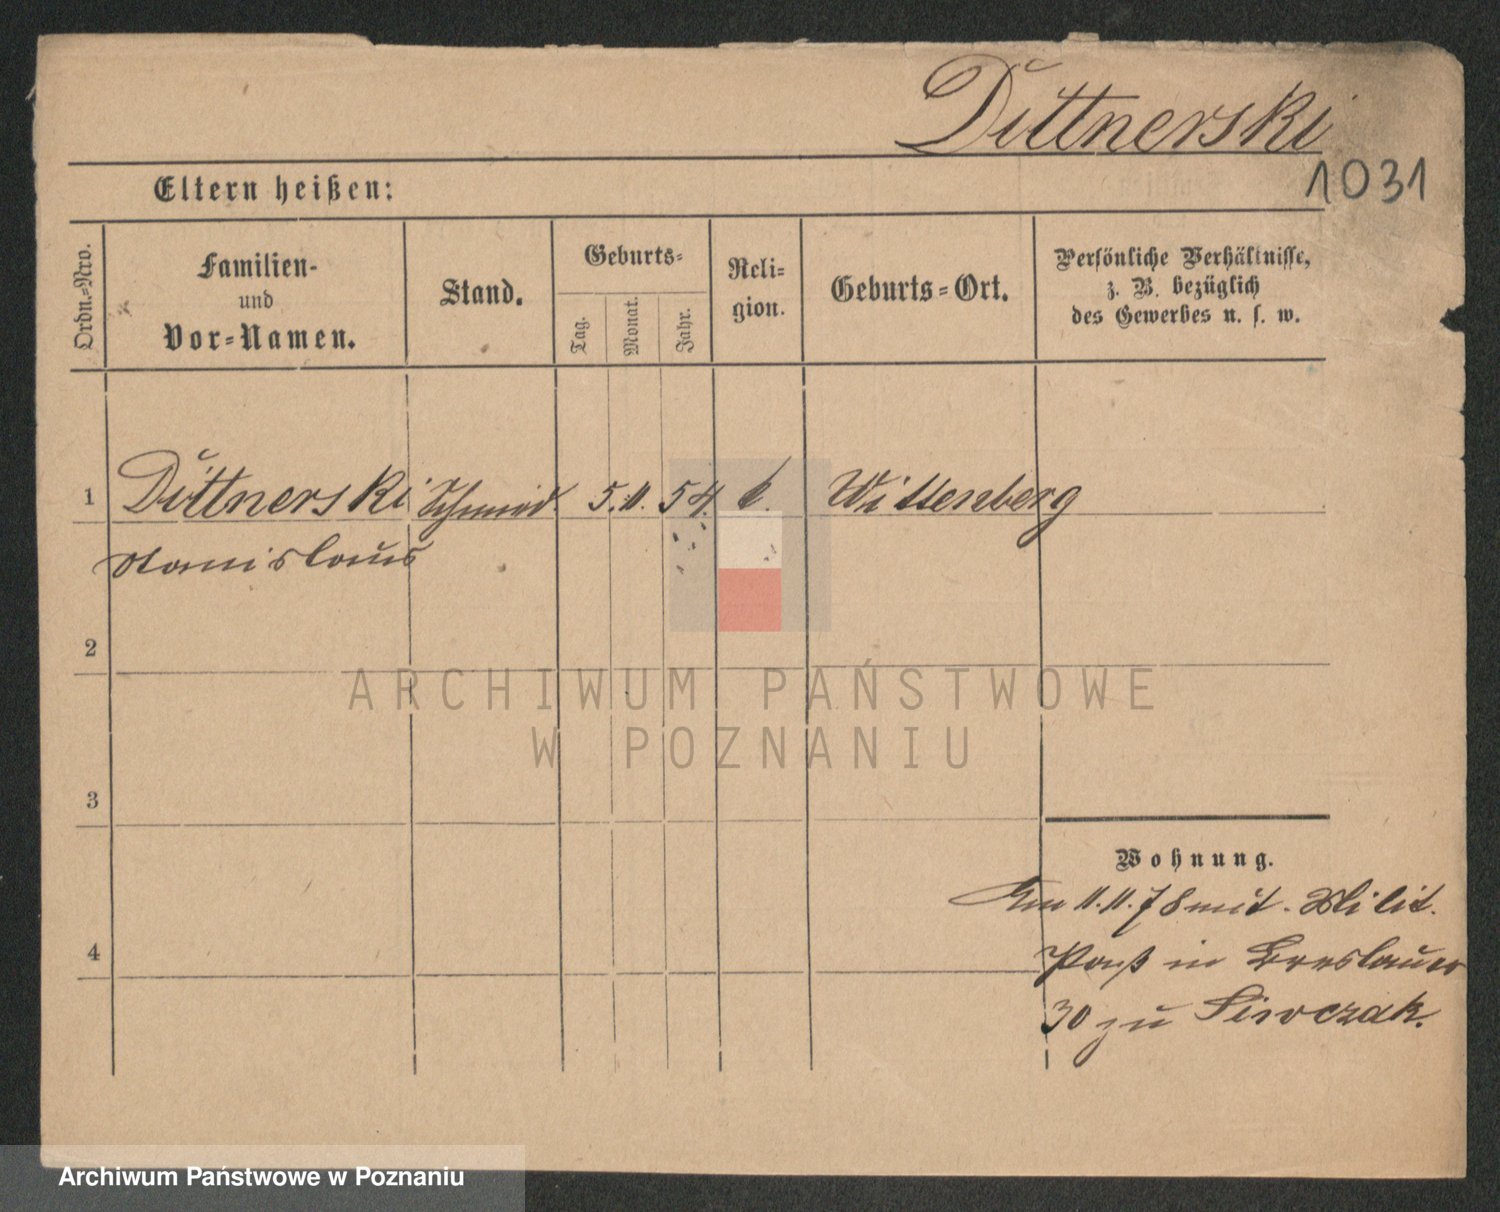 Dittnerski
1031
Eltern heißen:
Ordn.-Nro.
Familien-
und
Vor-Namen.
Stand.
Geburts-
Tag.
Monat.
Jahr.
Reli-
gion.
Geburts-Ort.
Persönliche Verhältnisse,
z. B. bezüglich
des Gewerbes u. s. w.
1 Dittnerski Schmid. 5. 11. 54. k. Wittenberg
Stanislaus
2
3
4
Wohnung.
Am 11.11.78 mit. Milit.
Paß in Breslauer
30 zu Siwczak.
ARCHIWUM PAŃSTWOWE
W POZNANIU
Archiwum Państwowe w Poznaniu